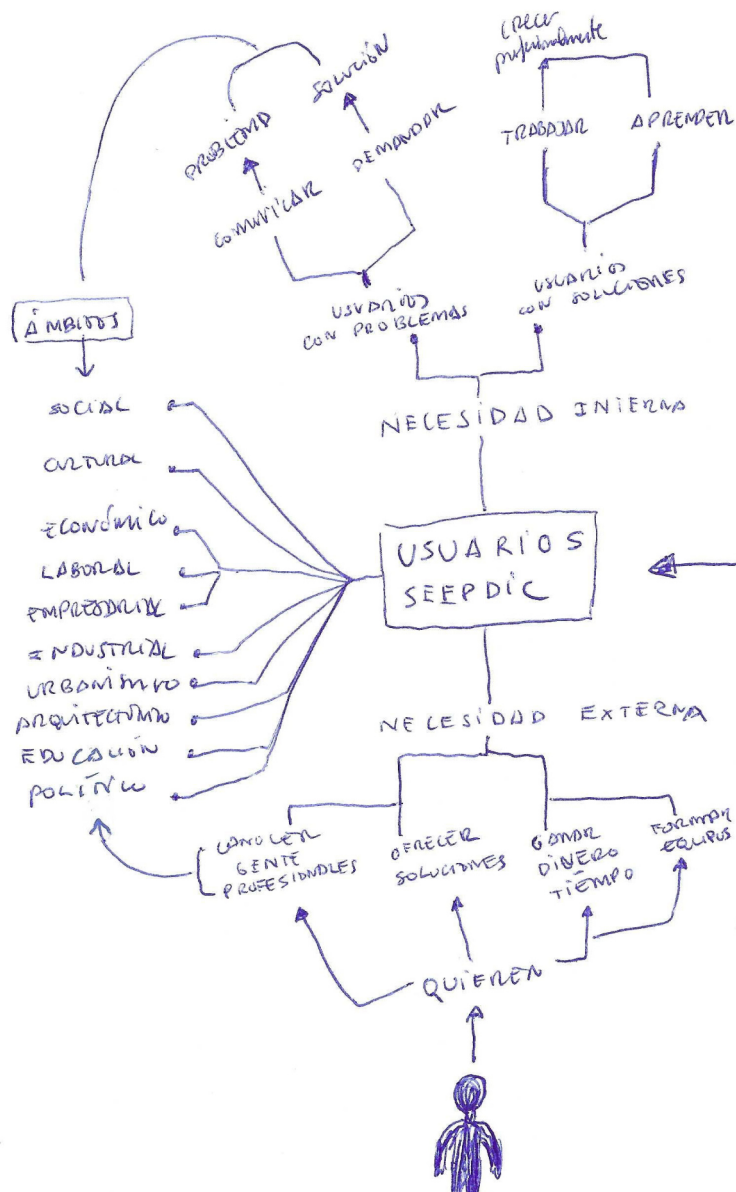 CRECER
profesionalmente
SOLUCIÓN
PROBLEMA
TRABAJAR
APRENDER
DEMANDAR
COMUNICAR
USUARIOS
CON PROBLEMAS
USUARIOS
CON SOLUCIONES
ÁMBITOS
NECESIDAD INTERNA
SOCIAL
CULTURAL
ECONÓMICO
LABORAL
EMPRESARIAL
INDUSTRIAL
URBANÍSTICO
ARQUITECTÓNICO
EDUCACIÓN
POLÍTICO
USUARIOS
SEEPDIC
NECESIDAD EXTERNA
CONOCER
GENTE
PROFESIONALES
OFRECER
SOLUCIONES
GANAR
DINERO
TIEMPO
FORMAR
EQUIPOS
QUIEREN